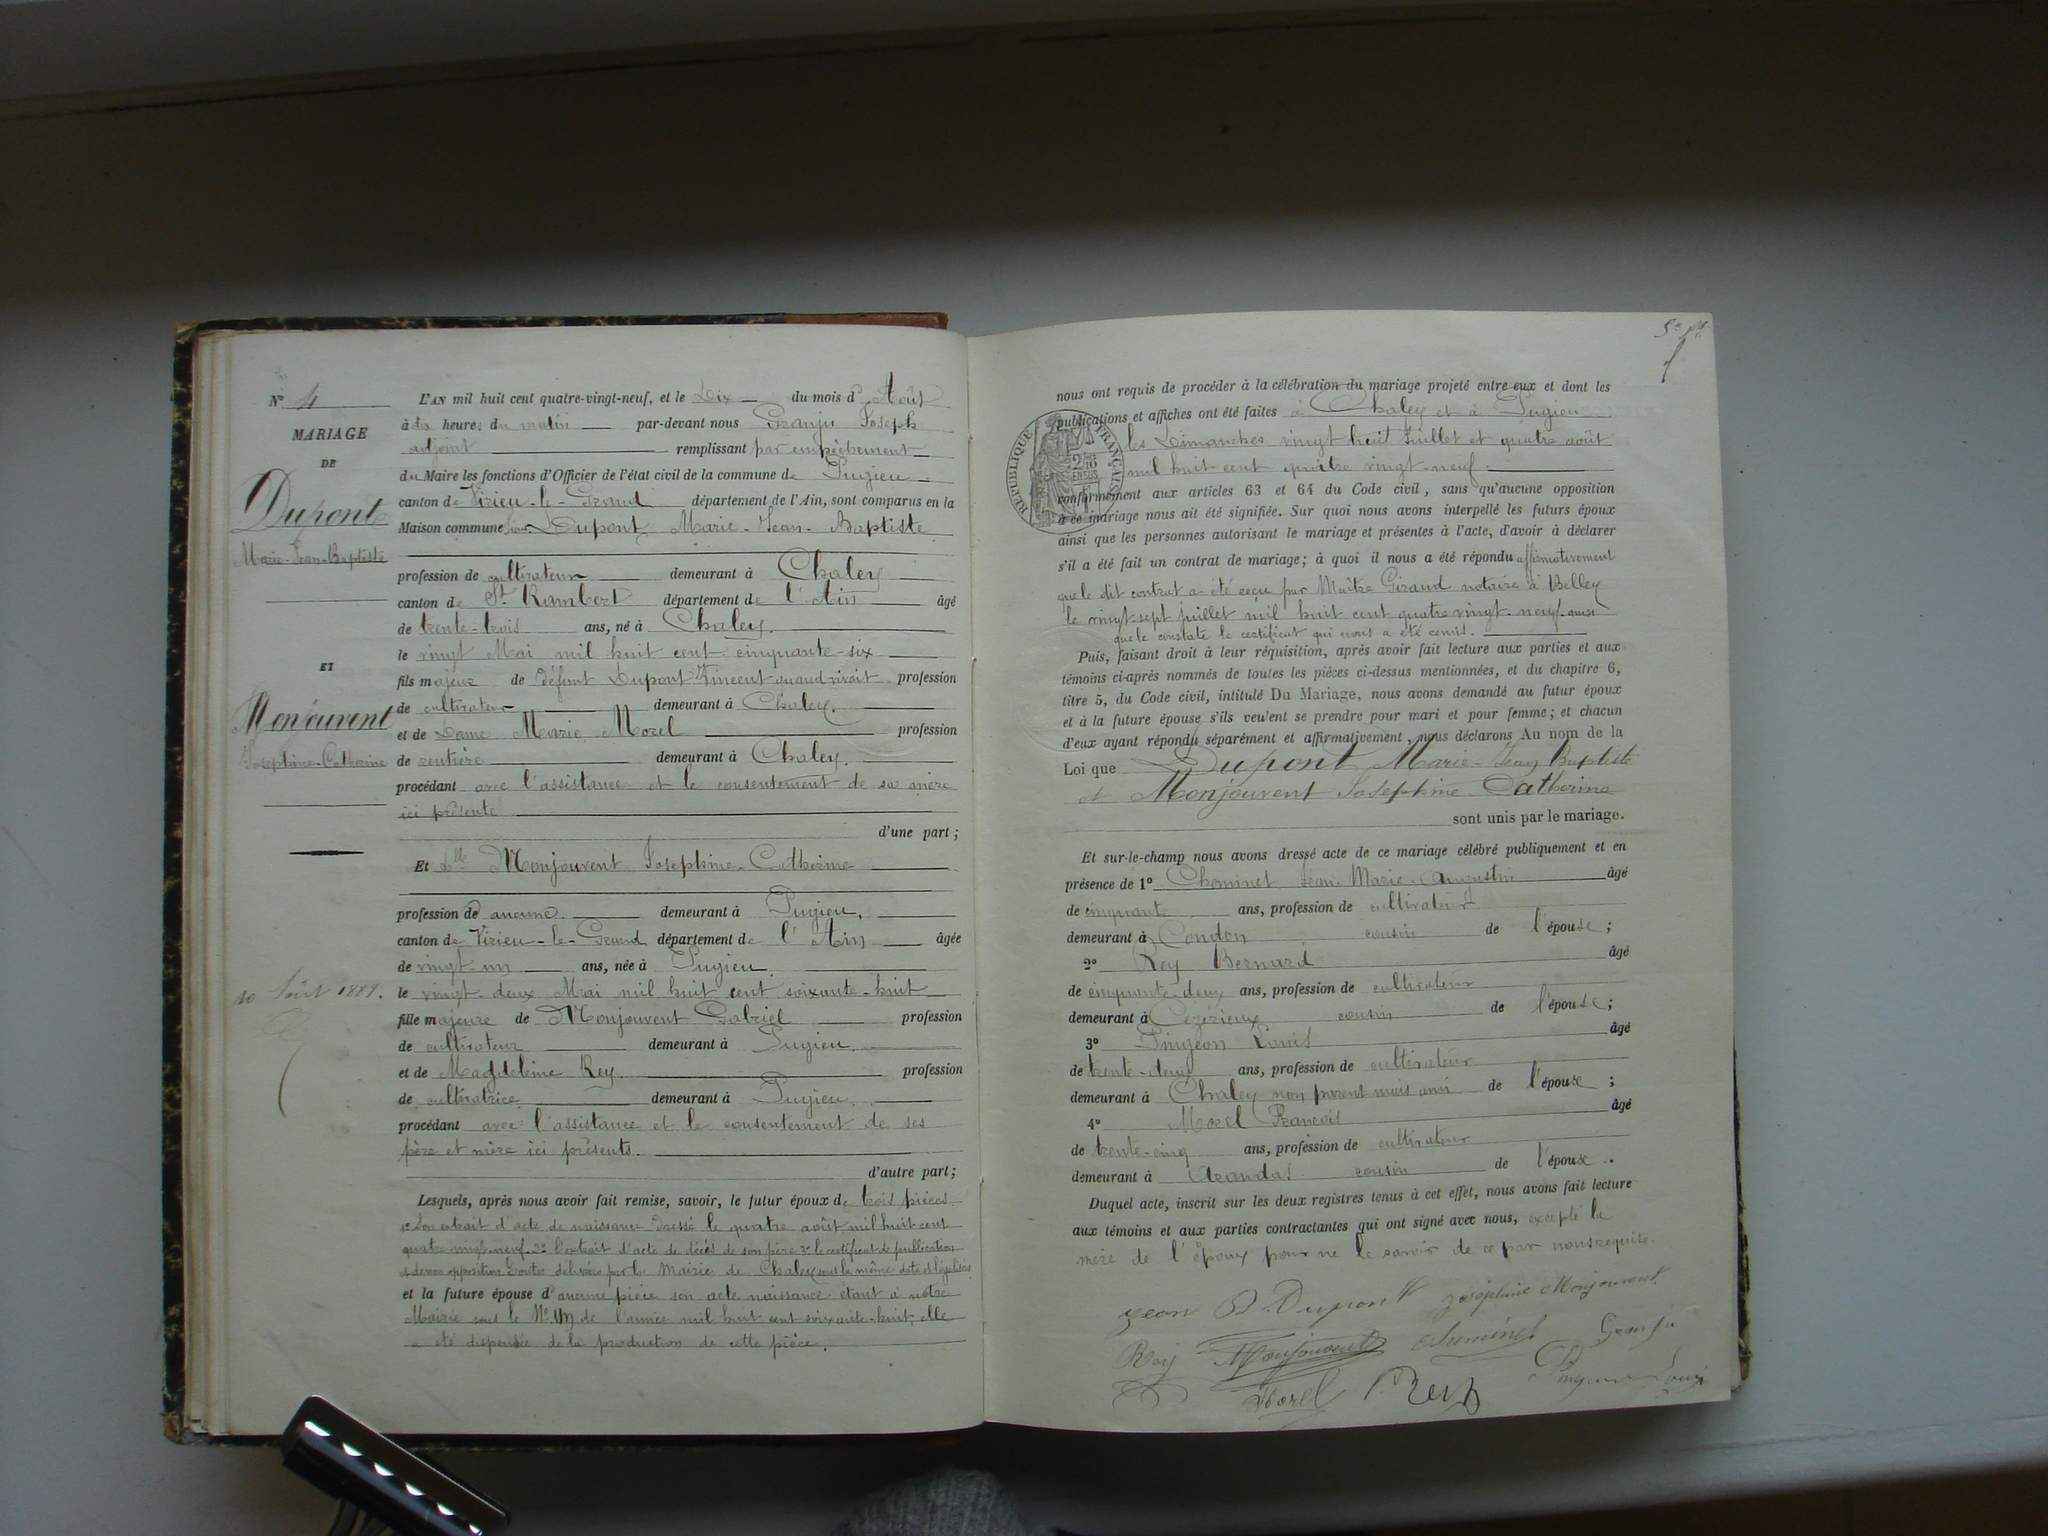 Nº 4
MARIAGE
DE
Dupont
Marie-Jean-Baptiste
ET
Monjouvent
Josephine-Catherine
10 Août 1889.
L'AN mil huit cent quatre-vingt-neuf, et le Dix du mois d'Août
à dix heures du matin par-devant nous Granju Joseph
adjoint remplissant par empêchement
du Maire les fonctions d'Officier de l'état civil de la commune de Pugieu
canton de Virieu-le-Grand département de l'Ain, sont comparus en la
Maison commune Dupont Marie-Jean-Baptiste
profession de cultivateur demeurant à Chaley
canton de St Rambert département de l'Ain âgé
de trente-trois ans, né à Chaley.
le vingt Mai mil huit cent cinquante-six
fils majeur de défunt Dupont Vincent quand vivait profession
de cultivateur demeurant à Chaley.
et de Dame Marie Morel profession
de rentière demeurant à Chaley.
procédant avec l'assistance et le consentement de sa mère
ici présente
d'une part;
Et Dlle Monjouvent Josephine-Catherine
profession de aucune demeurant à Pugieu.
canton de Virieu-le-Grand département de l'Ain âgée
de vingt-un ans, née à Pugieu.
le vingt-deux Mai mil huit cent soixante-huit
fille majeure de Monjouvent Gabriel profession
de cultivateur demeurant à Pugieu.
et de Magdeleine Rey. profession
de cultivatrice demeurant à Pugieu.
procédant avec l'assistance et le consentement de ses
père et mère ici présents.
d'autre part;
Lesquels, après nous avoir fait remise, savoir, le futur époux de trois pièces
1º Son extrait d'acte de naissance dressé le quatre août mil huit cent
quatre-vingt-neuf. 2º l'extrait d'acte de décès de son père 3º le certificat de publication
et de non opposition toutes delivrées par la Mairie de Chaley sous la même date et légalisées
et la future épouse d'aucune pièce son acte naissance étant à notre
Mairie sous le Nº un de l'année mil huit cent soixante-huit, elle
a été dispensée de la production de cette pièce.
5e
nous ont requis de procéder à la célébration du mariage projeté entre eux et dont les
publications et affiches ont été faites à Chaley et à Pugieu
les Dimanches vingt huit Juillet et quatre août
mil huit cent quatre vingt-neuf
RÉPUBLIQUE FRANÇAISE
conformément aux articles 63 et 64 du Code civil, sans qu'aucune opposition
à ce mariage nous ait été signifiée. Sur quoi nous avons interpellé les futurs époux
ainsi que les personnes autorisant le mariage et présentes à l'acte, d'avoir à déclarer
s'il a été fait un contrat de mariage; à quoi il nous a été répondu affirmativement
que le dit contrat a été reçu par Maître Girand notaire à Belley
le vingt-sept juillet mil huit cent quatre vingt-neuf ainsi
que le constate le certificat qui nous a été remis.
Puis, faisant droit à leur réquisition, après avoir fait lecture aux parties et aux
témoins ci-après nommés de toutes les pièces ci-dessus mentionnées, et du chapitre 6,
titre 5, du Code civil, intitulé Du Mariage, nous avons demandé au futur époux
et à la future épouse s'ils veu'ent se prendre pour mari et pour femme; et chacun
d'eux ayant répondu séparément et affirmativement, nous déclarons Au nom de la
Loi que Dupont Marie-Jean Baptiste
et Monjouvent Josephine-Catherine
sont unis par le mariage.
Et sur-le-champ nous avons dressé acte de ce mariage célébré publiquement et en
présence de 1º Cheminet Jean-Marie-Augustin âgé
de cinquante ans, profession de cultivateur
demeurant à Condon cousin de l'épouse;
2º Rey Bernard âgé
de cinquante-deux ans, profession de cultivateur
demeurant à Cezérieux cousin de l'épouse;
3º Pingeon Louis âgé
de trente-deux ans, profession de cultivateur
demeurant à Chaley non parent mais ami de l'époux;
4º Morel François âgé
de trente-cinq ans, profession de cultivateur
demeurant à Arandas cousin de l'époux.
Duquel acte, inscrit sur les deux registres tenus à cet effet, nous avons fait lecture
aux témoins et aux parties contractantes qui ont signé avec nous, excepté la
mère de l'époux pour ne le savoir de ce par nous requise.
Jean B Dupont Josephine Monjouvent
Rey Monjouvent Cheminet Granju
Morel Rey Pingeon Louis